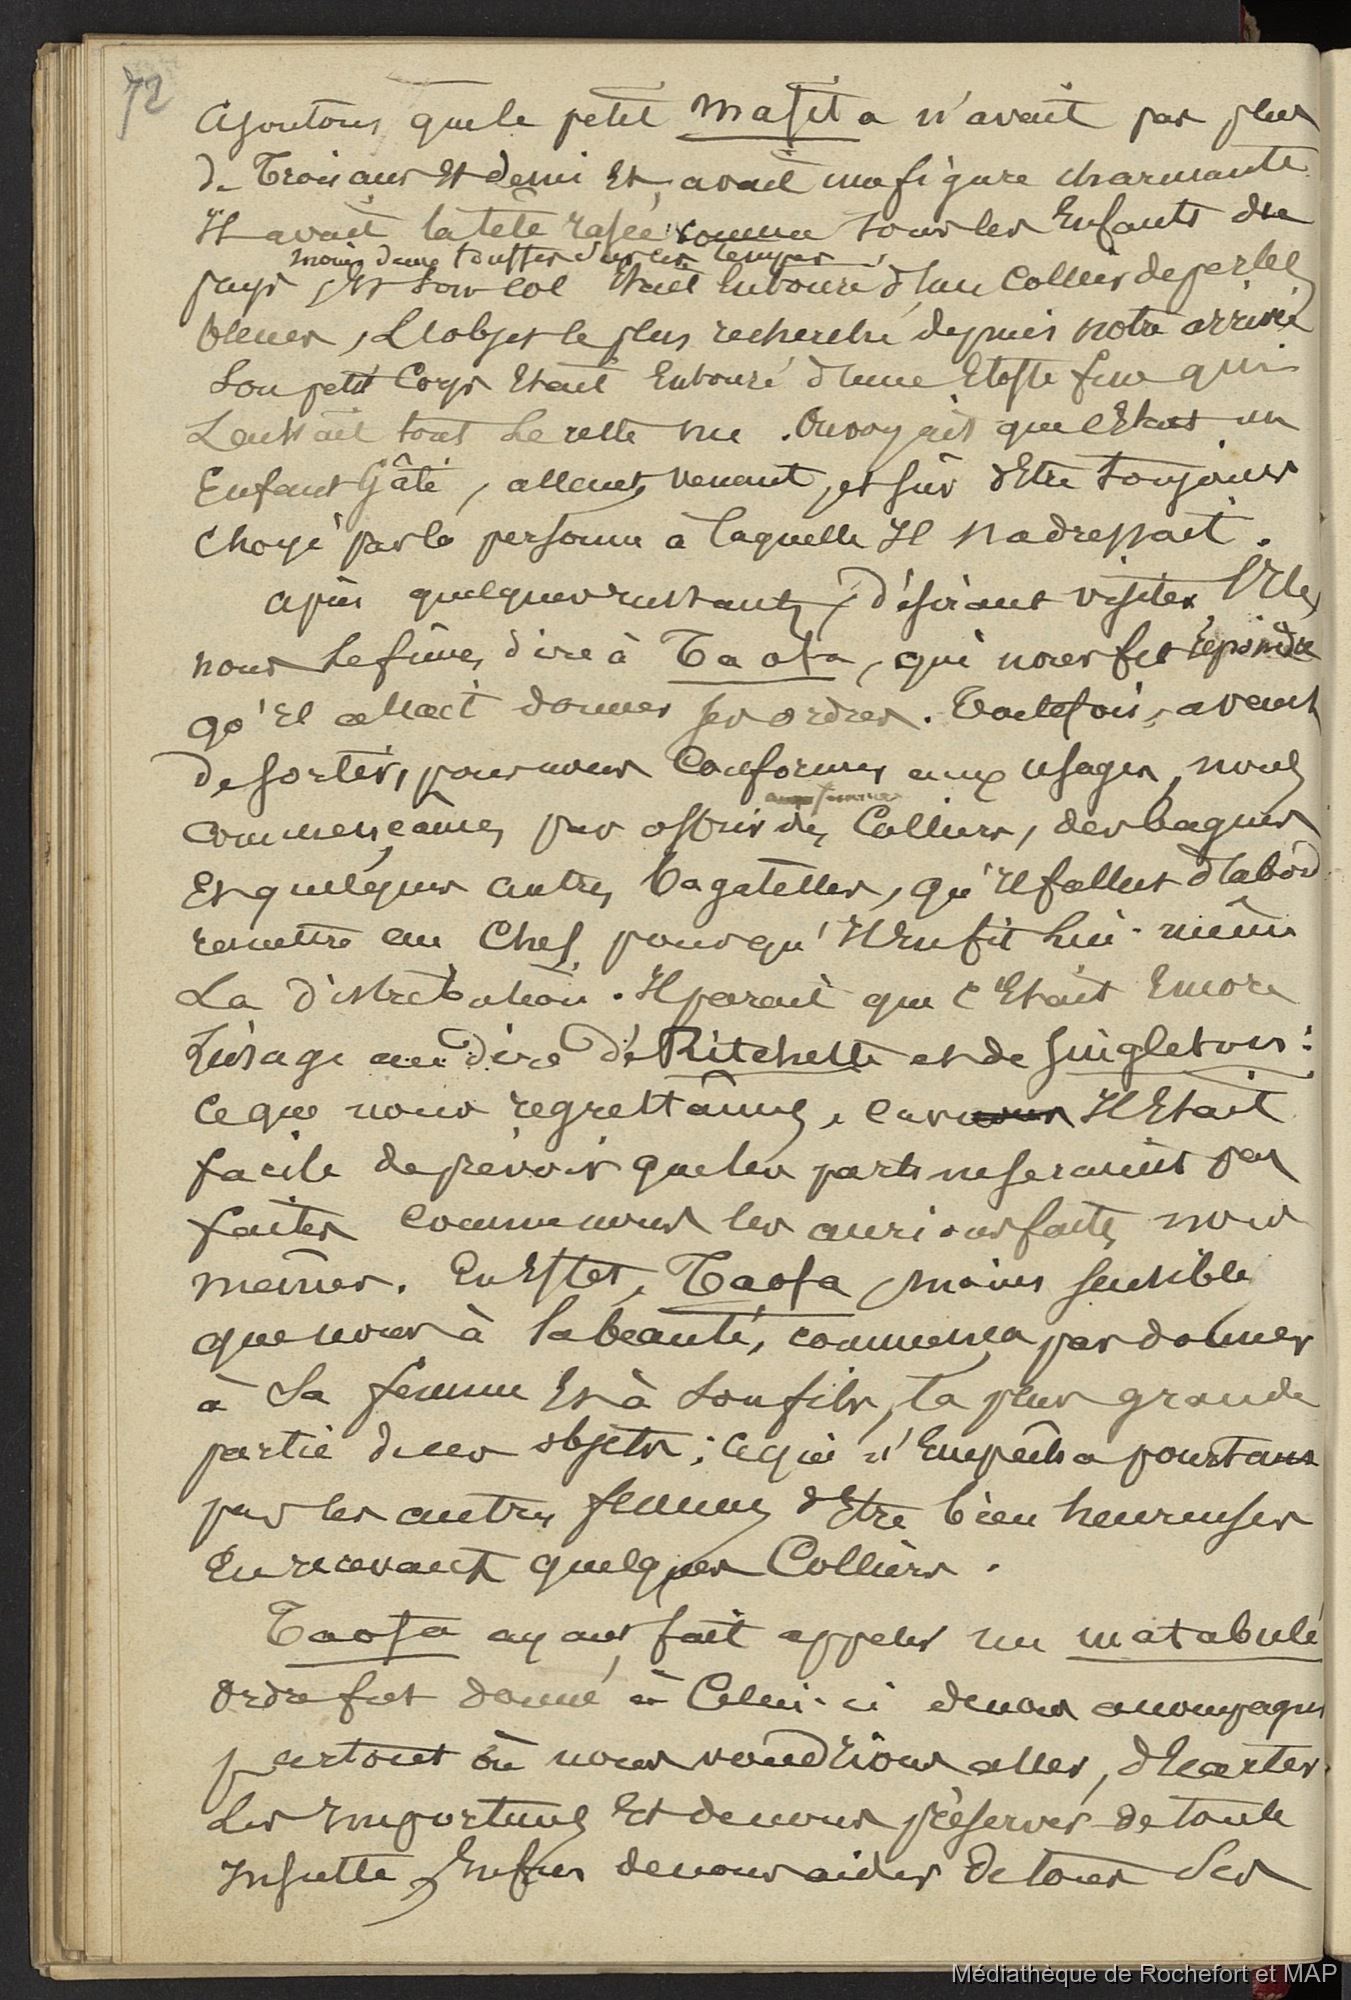 72
Ajoutons que le petit Mafita n'avait pas plus
de Trois ans Et demi Et avait une figure charmante.
Il avait la tête rasée comme tous les Enfants du
moins deux touffes sur les tempes
pays, Et son col Etait Entouré d'un Collier de perles
bleues, L'objet le plus recherché depuis notre arrivée
Son petit Corps Etait Entouré d'une Etoffe fine qui
Laissait tout le reste nu. On voyait que c'Etait un
Enfant Gâté, allant, venant, et sûr d'Etre toujours
choyé par la personne à laquelle Il s'adressait.
Après quelques instants, désirant visiter l'Ile,
nous le fîmes dire à Taofa, qui nous fit répondre
qu'Il allait donner ses ordres. Toutefois, avant
de sortir, pour nous Conformer aux usages, nous
aux femmes
commençâmes par offrir des Colliers, des bagues
Et quelques autres bagatelles, qu'Il fallut d'abord
remettre au Chef, pour qu'Il En fit lui-même
La distribution. Il parait que c'Etait Encore
L'usage au dire de Ritchette et de Singleton:
Ce que nous regrettâmes, car nous Il Etait
facile de prévoir que les parts ne seraient pas
faites comme nous les aurions faites nous
mêmes. En Effet, Taofa, moins sensible
que nous à la beauté, commença par donner
à Sa femme Et à Son fils, la plus grande
partie de ces objets; ce qui n'Empêcha pourtant
pas les autres femmes d'Etre bien heureuses
En recevant quelques Colliers.
Taofa ayant fait appeler un matabulé
Ordre fut donné à Celui-ci de nous accompagner
partout où nous voudrions aller, d'Ecarter
Les Importuns Et de nous préserver de toute
Insulte, Enfin de nous aider de tous Ses
Médiathèque de Rochefort et MAP